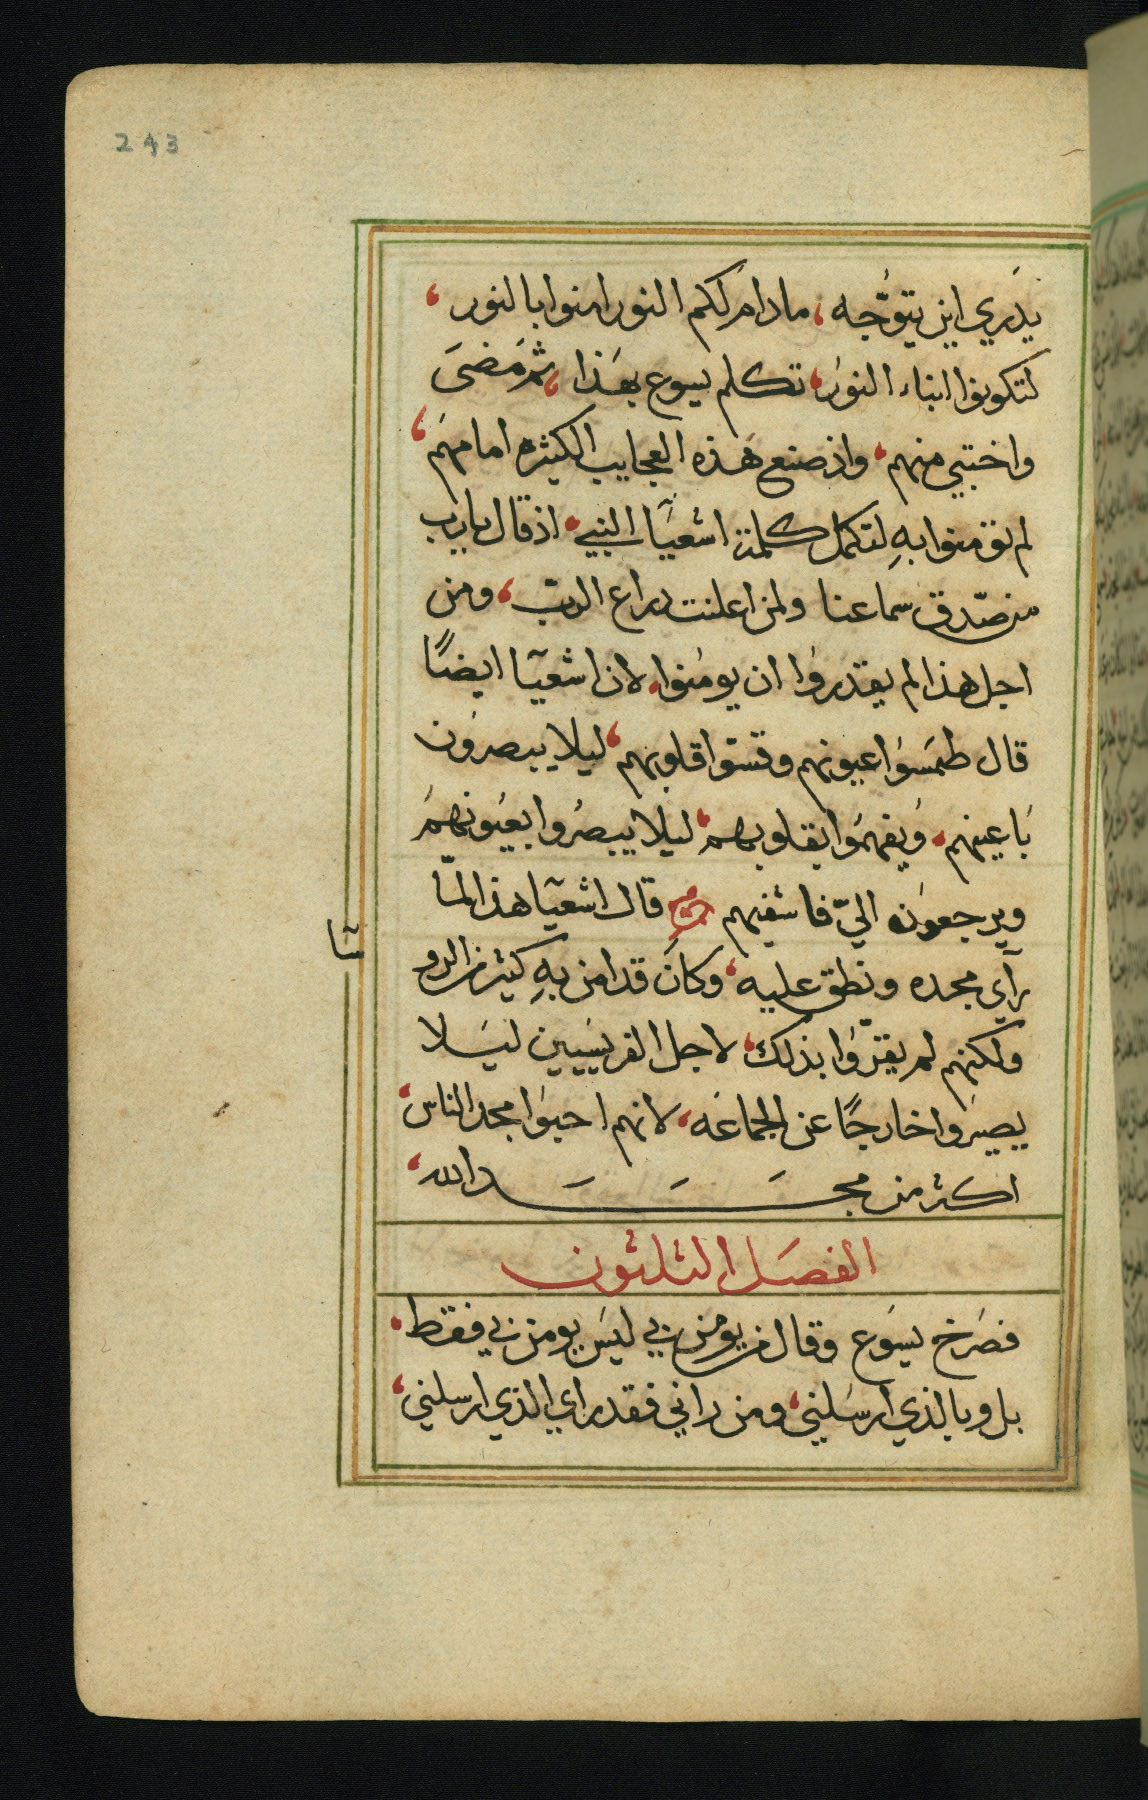 243
يدري اين يتوجّه، مادام لكم النور امنوا بالنور،
لتكونوا ابناء النور، تكلم يسوع بهذا، ثم مضىَ
واختبي منهم، واذ صنع هذه العجايب الكثيره امامهم،
لم يؤمنوا بهِ لتكمل كلمة اشعيآ النبي. اذ قال يا رب
من صدّق سماعنا ولمن اعلنت دراع الرب، ومن
اجل هذا لم يقدروا ان يومنوا. لان اشعيآ ايضًا
قال طمسوا عيونهم وقسّوا قلوبهم، ليلا يبصرون
باعينهم. ويفهموا بقلوبهم، ليلا يبصروا بعيونهم
ويرجعون اليّ فاشفيهم قال اشعيآ هذا لمّا
رآي مجده ونطق عليه، وكان قد امن بهِ كثير من الرو
سآ
ولكنهم لم يقرّوا بذلك، لاجل الفريسيين ليلا
يصيروا خارجًا عن الجماعه، لانهم احبوا مجد الناس،
اكثر من مجد الله،
الفصل الثلثون
فصرخ يسوع وقال من يومن بي ليس يومن بي فقط.
بل وبالذي ارسلني، ومن راني فقد راي الذي ارسلني،